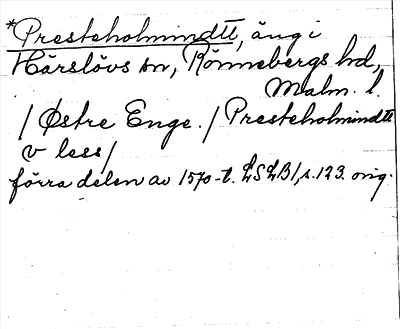 *Presteholmindtt, äng i
Härslövs sn, Rönnebergs hd,
Malm. l.
/ Østre Enge. / Presteholmindtt
v lees /
förra delen av 1570-t. LSLB1, s. 123. orig.